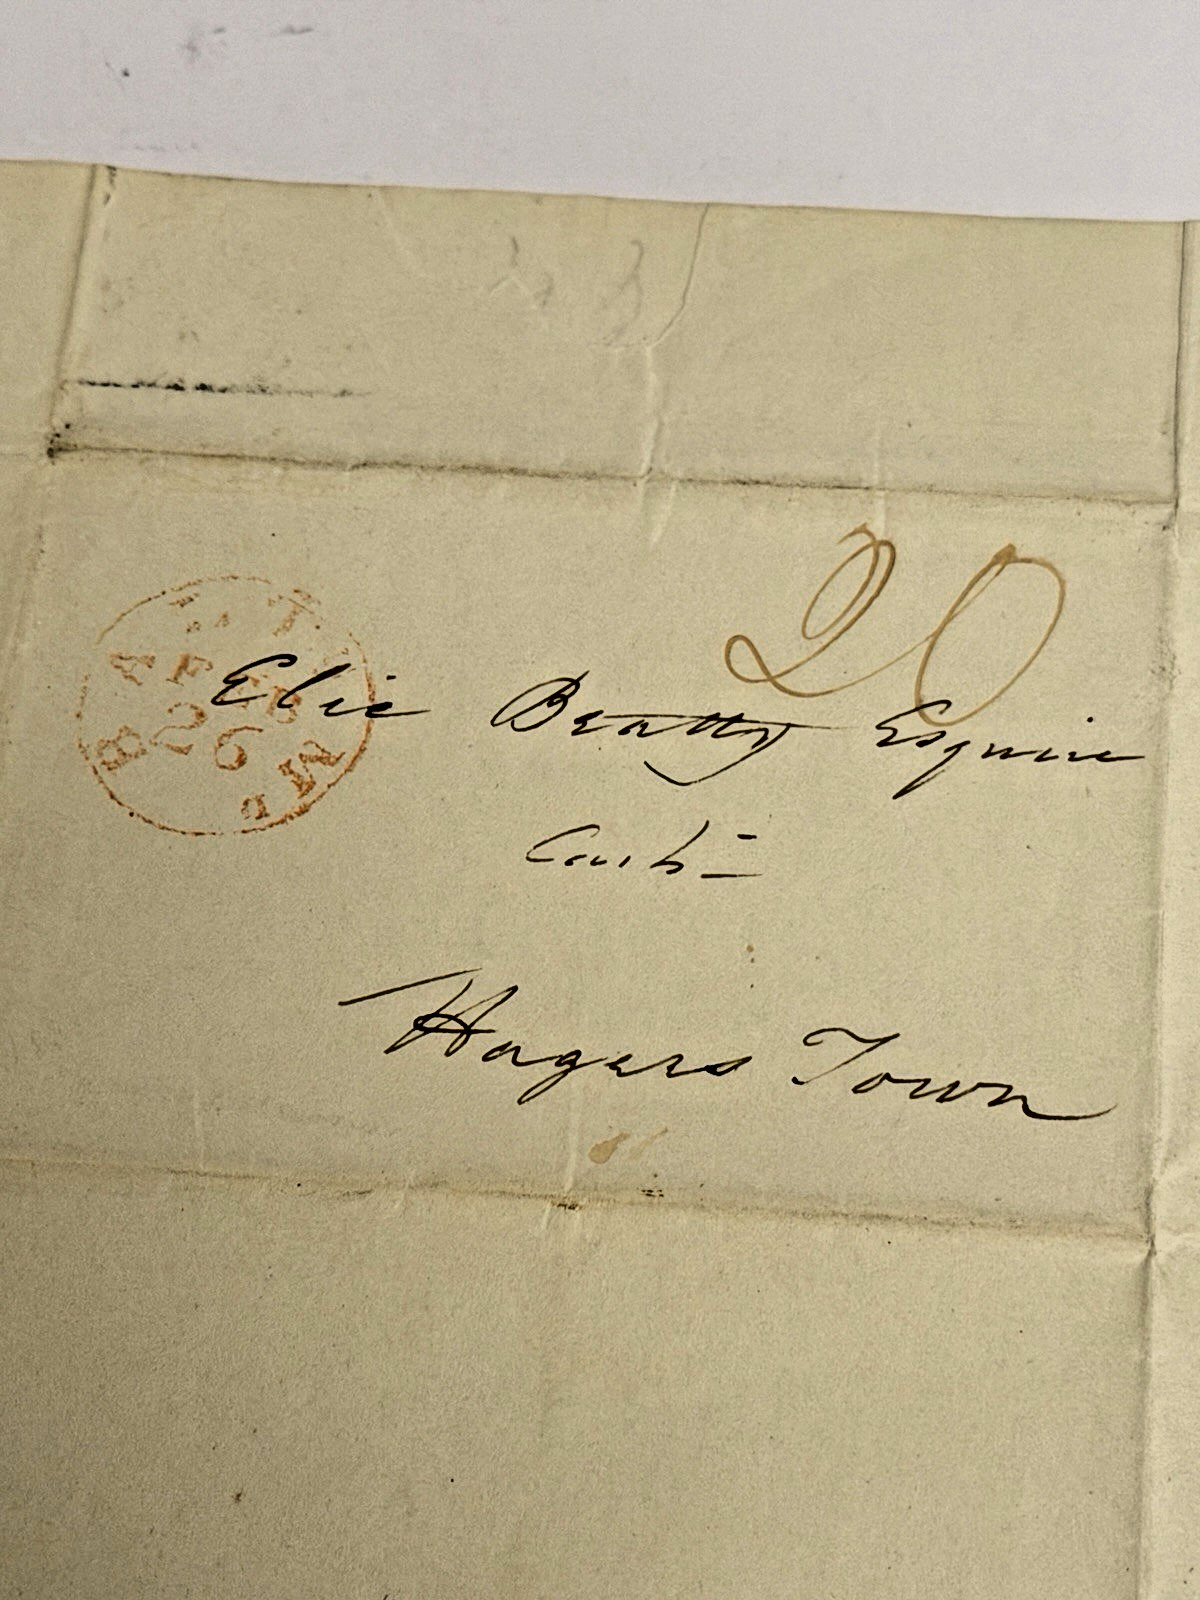 20
BALT. MD
FEB
26
Elie Beatty Esquire
Cash-
Hagers Town